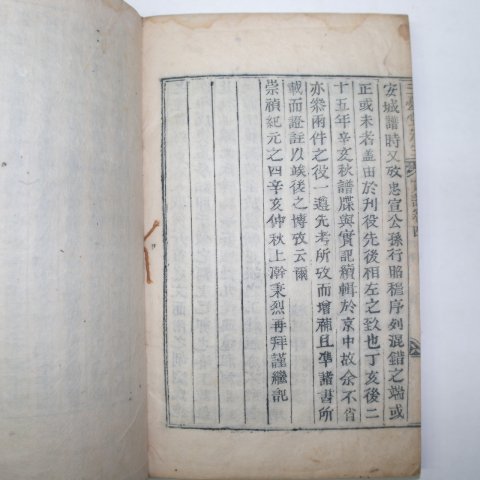 安城譜時又攷忠宣公孫行昭穆序列混錯之端或
正或未者盖由於刊役先後相左之致也丁亥後二
十五年辛亥秋譜牒與實記續輯於京中故余不肖
亦叅兩件之役一遵先考所攷而增補且準諸書所
載而證註以竢後之博攷云爾
崇禎紀元之四辛亥仲秋上澣秉烈再拜謹繼記